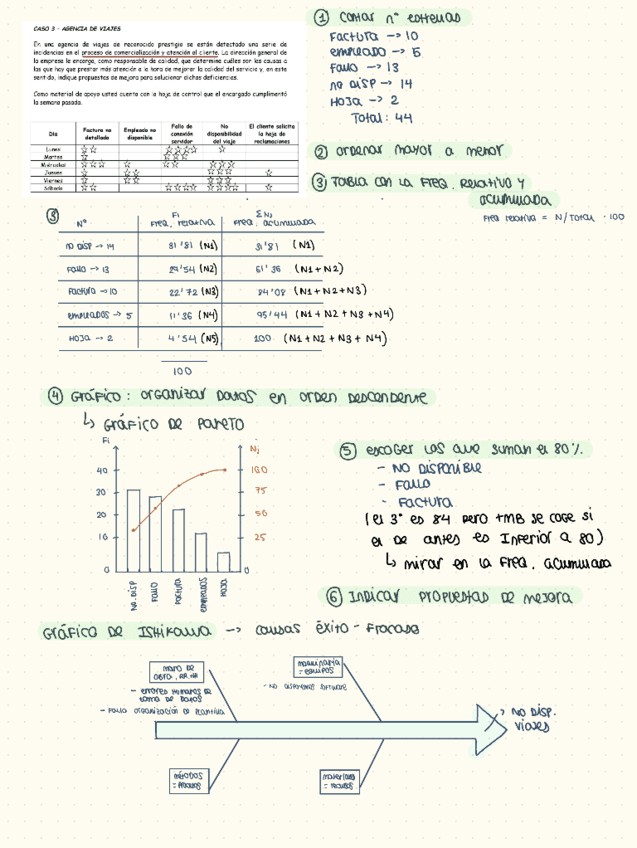 CASO 3 - AGENCIA DE VIAJES
En una agencia de viajes de reconocido prestigio se están detectado una serie de
incidencias en el proceso de comercialización y atención al cliente. La dirección general de
la empresa le encarga, como responsable de calidad, que determine cuáles son las causas a
las que hay que prestar más atención a la hora de mejorar la calidad del servicio y, en este
sentido, indique propuestas de mejora para solucionar dichas deficiencias.
Como material de apoyo usted cuenta con la hoja de control que el encargado cumplimentó
la semana pasada.
Día Factura no detallada Empleado no disponible Fallo de conexión servidor No disponibilidad del viaje El cliente solicita la hoja de reclamaciones
Lunes
Martes
Miércoles
Jueves
Viernes
Sábado
① Contar nº estrellas
Factura → 10
empleado → 5
Fallo → 13
no DISP → 14
HOJA → 2
Total: 44
② ordenar mayor a menor
③ Tabla con la Freq. Relativa y
acumulada
Freq relativa = N/Total · 100
③ Nº Fi Freq. relativa ΣNj Freq. acumulada
no DISP → 14 31'81 (N1) 31'81 (N1)
Fallo → 13 29'54 (N2) 61'36 (N1+N2)
Factura → 10 22'72 (N3) 84'08 (N1+N2+N3)
empleados → 5 11'36 (N4) 95'44 (N1 + N2 + N3 + N4)
HOJA → 2 4'54 (N5) 100 (N1 + N2 + N3 + N4)
100
④ GRÁFICO: organizar datos en orden descendente
↳ GRÁFICO DE PARETO
Fi Nj
40 100
30 75
20 50
10 25
0 0
NO. DISP
FALLO
FACTURA
EMPLEADOS
HOJA
⑤ escoger los que suman el 80%.
- NO DISPONIBLE
- FALLO
- FACTURA
(el 3º es 84 pero tmb se coge si
el de antes es inferior a 80)
↳ mirar en la Freq. acumulada
⑥ Indicar propuestas de mejora
GRÁFICO DE ISHIKAWA → causas éxito - Fracaso
mano de
obra, RR.HH
- errores humanos de
toma de datos
- Fallo organización de plantilla
maquinaria
= equipos
- No disponemos software
NO DISP.
VIAJES
métodos
materiales